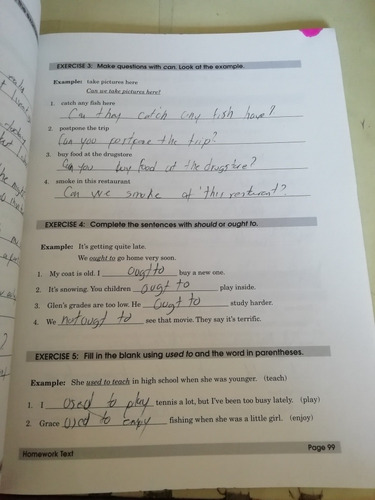 EXERCISE 3: Make questions with can. Look at the example.
Example: take pictures here
Can we take pictures here?
1. catch any fish here
Can they catch any fish have?
2. postpone the trip
Can you postpone the trip?
3. buy food at the drugstore
Can you buy food at the drugstore?
4. smoke in this restaurant
Can we smoke at this resturent?
EXERCISE 4: Complete the sentences with should or ought to.
Example: It's getting quite late.
We ought to go home very soon.
1. My coat is old. I ought to buy a new one.
2. It's snowing. You children ought to play inside.
3. Glen's grades are too low. He ought to study harder.
4. We not ought to see that movie. They say it's terrific.
EXERCISE 5: Fill in the blank using used to and the word in parentheses.
Example: She used to teach in high school when she was younger. (teach)
1. I used to play tennis a lot, but I've been too busy lately. (play)
2. Grace used to enjoy fishing when she was a little girl. (enjoy)
Homework Text
Page 99